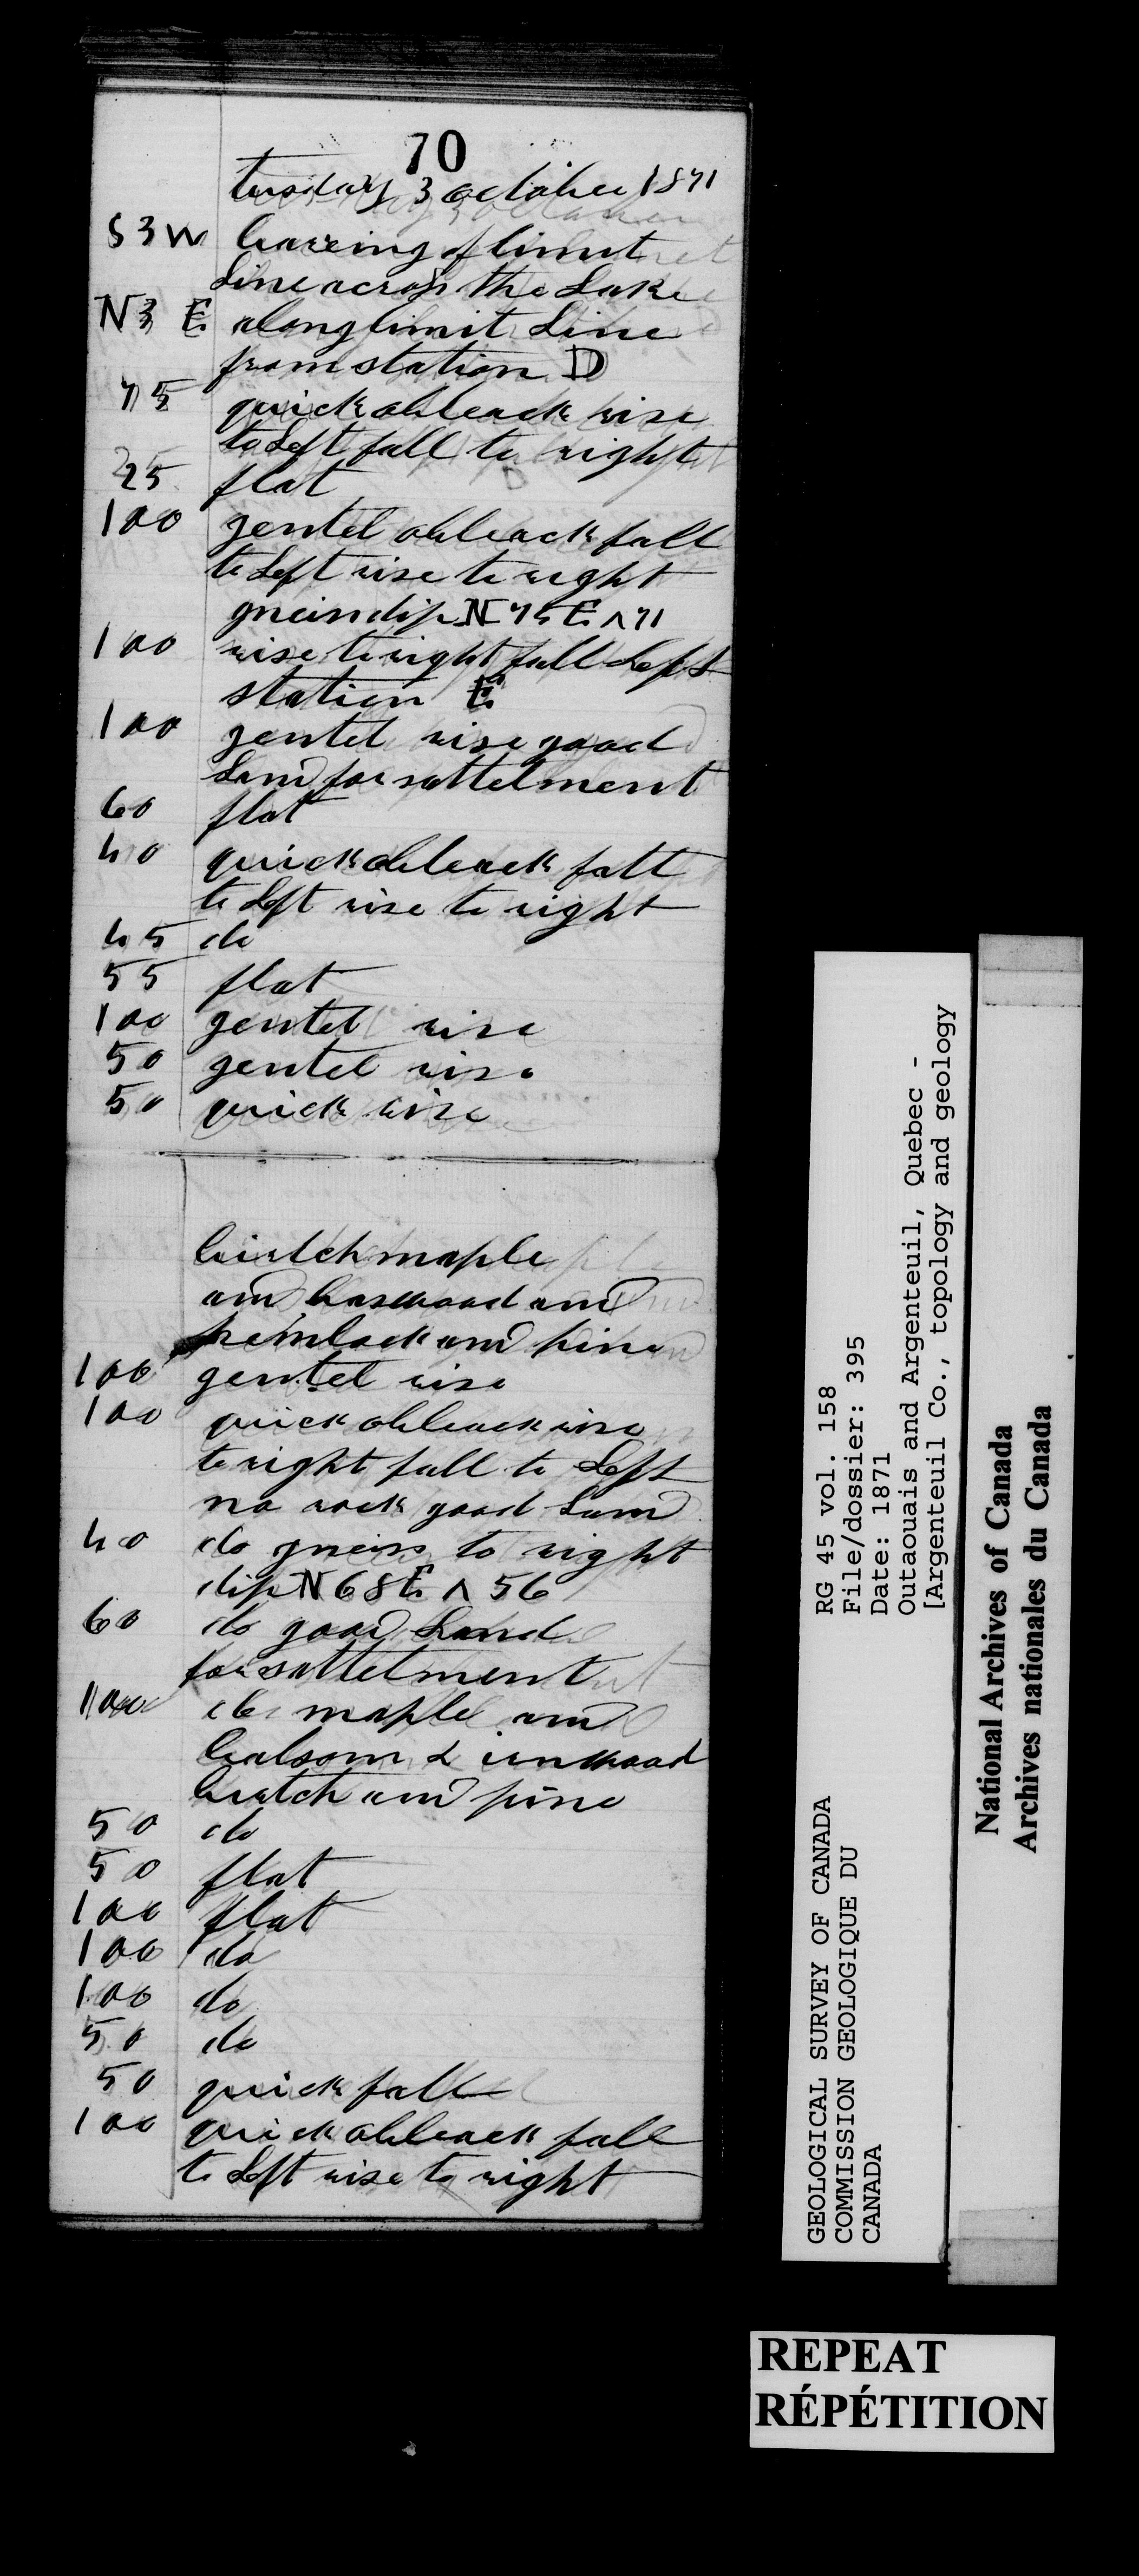 70
tusday 3 october 1871
S 3 W bareing of limut
Line across the Lake
N 3 E along limit Line
from station D
75 quick obleack rise
to Left fall to right
25 flat
100 gentel obleack fall
to Left rise to right
gneiss dip N 75 E ʌ 71
100 rise to right fall Left
station E
100 gentel rise good
Land for sattelment
60 flat
40 quick obleack fall
to Left rise to right
45 do
55 flat
100 gentel rise
50 gentel rise
50 quick rise
birtch maple
and baswood and
hemlock and pine
100 gentel rise
100 quick obleack rise
to right fall to Left
no rock good Land
40 do gneiss to right
dip N 68 E ʌ 56
60 do good Land
for sattelment
100 do maple and
balsom & irnwood
birtch and pine
50 do
50 flat
100 flat
100 do
100 do
50 do
50 quick fall
100 quick obleack fall
to Left rise to right
GEOLOGICAL SURVEY OF CANADA
COMMISSION GEOLOGIQUE DU
CANADA
RG 45 vol. 158
File/dossier: 395
Date: 1871
Outaouais and Argenteuil, Quebec -
[Argenteuil Co., topology and geology
National Archives of Canada
Archives nationales du Canada
REPEAT
RÉPÉTITION